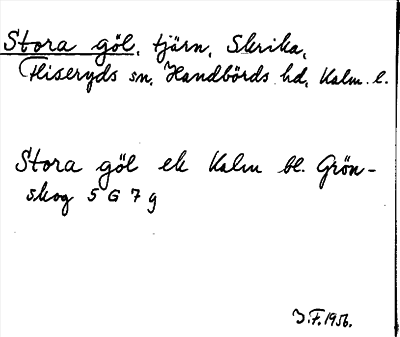 Stora göl, tjärn, Skrika,
Fliseryds sn, Handbörds hd, Kalm. l.
Stora göl ek Kalm bl. Grön-
skog 5 G 7 g
J.F. 1956.